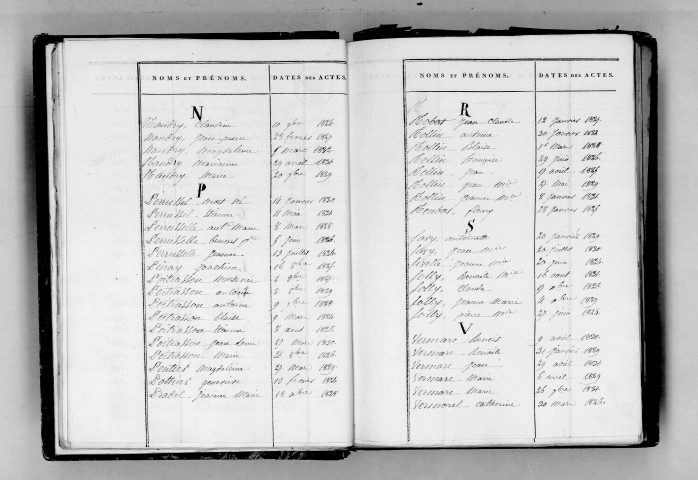 NOMS ET PRÉNOMS. DATES DES ACTES.
N
Naudry, Claudine 10 gbre 1824
Naudry, Jean pierre 28 fevrier 1829
Naudry, Magdeleine 1 mars 1822
Naudry Marianne 29 avril 1821
Naudry Marie 20 gbre 1829
P
Perussel mort né 16 janvier 1820
Perussel, Etienne 11 mai 1821
Perusselle ant.tte Marie 8 mar 1828
Perusselle 5 juin 1826
Perusselle Jeanne 13 juillet 1826
Pinay Joachim 16 8bre 1825
Poitrasson 8bre
Poitrasson antoine 8bre 1829
Poitrasson antoine 9 gbre 1828
Poitrasson Claire 9 mar 1824
Poitrasson Etienne 8 aout 1826
Poitrasson Jean Louis 27 mar 1820
Poitrasson Marie 21 8bre 1826
Magdeleine 27 mar 1829
13 fevrier 1822
Pradel Jeanne Marie 18 xbre 1828
NOMS ET PRÉNOMS. DATES DES ACTES.
R
Robat Jean Claude 12 janvier 1829
Rollin antoine 20 janvier 1822
Rollin Blaise 1er Mar 1828
Rollin françoise 29 juin 1826
Rollin Jean 19 aout 1825
Rollin Jean Mie 27 Mai 1829
Rollin Jeanne Mie 8 janvier 1821
28 janvier 1825
S
antoinette 20 janvier 1829
Jean Mie 20 juillet 1820
Jeanne Mie 20 juin 1824
Solly, Benoite Mie 16 aout 1821
Solly Claude 19 xbre 1825
Solly, Jeanne Marie 4 xbre 1829
Solly, pierre Mie 27 juin 1826
V
Vermare Benoit 9 avril 1820
Vermare Benoite 21 janvier 1829
Vermare Jean 29 avril 1821
Vermare Marie 6 avril 1829
Vermare Marie 26 gbre 1821
Vermorel Catherine 20 mar 1826